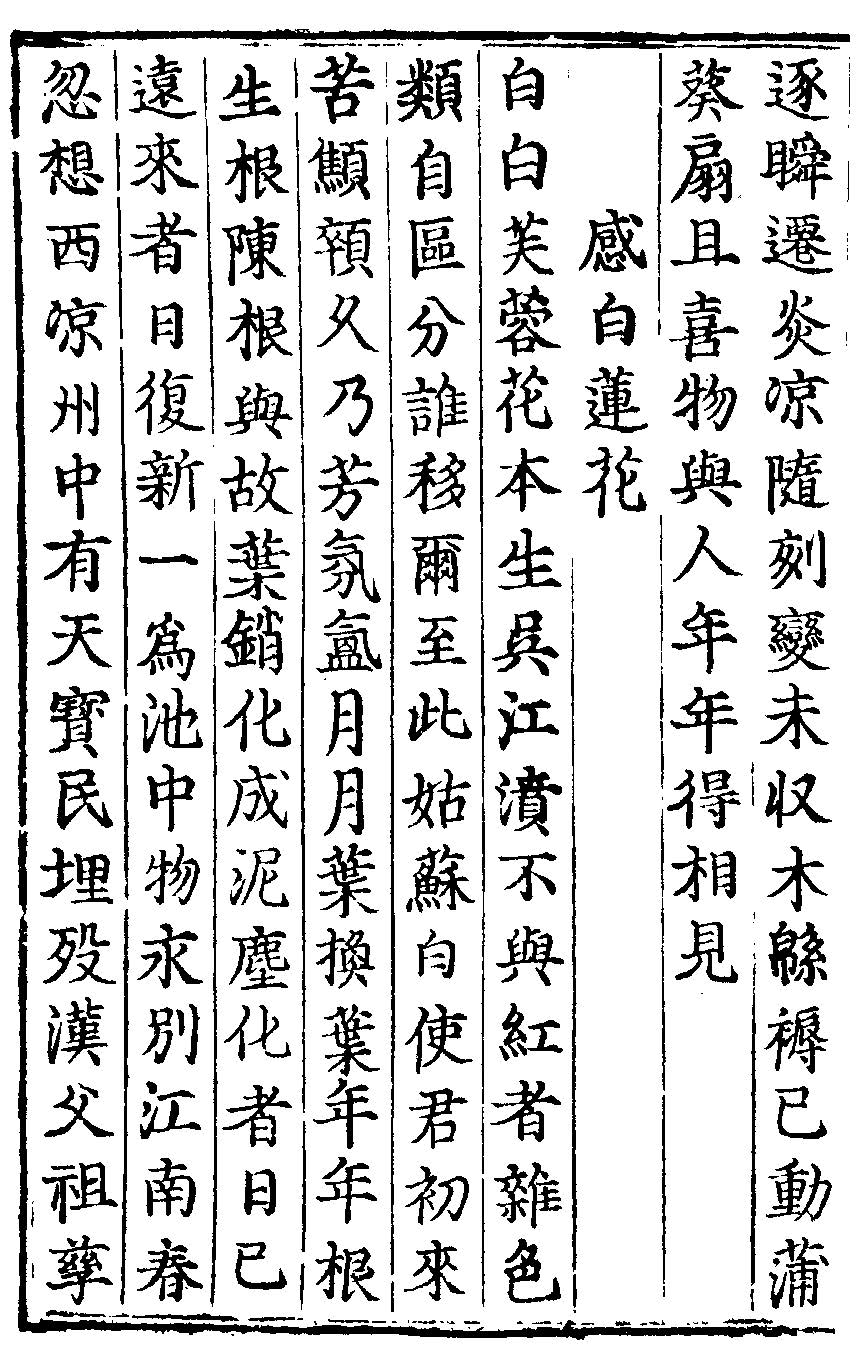 逐瞬遷炎凉隨刻變未収木緜褥已動蒲
葵扇且喜物與人年年得相見
感白蓮花
白白芙蓉花本生吳江濆不與紅者雜色
類自區分誰移爾至此姑蘇白使君初來
苦顦顇久乃芳氛氳月月葉換葉年年根
生根陳根與故葉銷化成泥塵化者日已
遠來者日復新一爲池中物永別江南春
忽想西凉州中有天寶民埋歿漢父祖孳